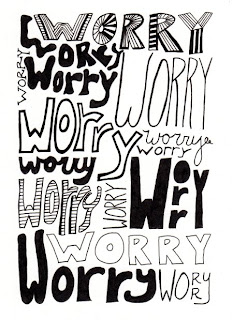 WORRY
WORRY
Worry
WORRY
WORRY
Worry
worry
worry
worry
Worry
WORRY
WORRY
WORRY
Worry
WORRY